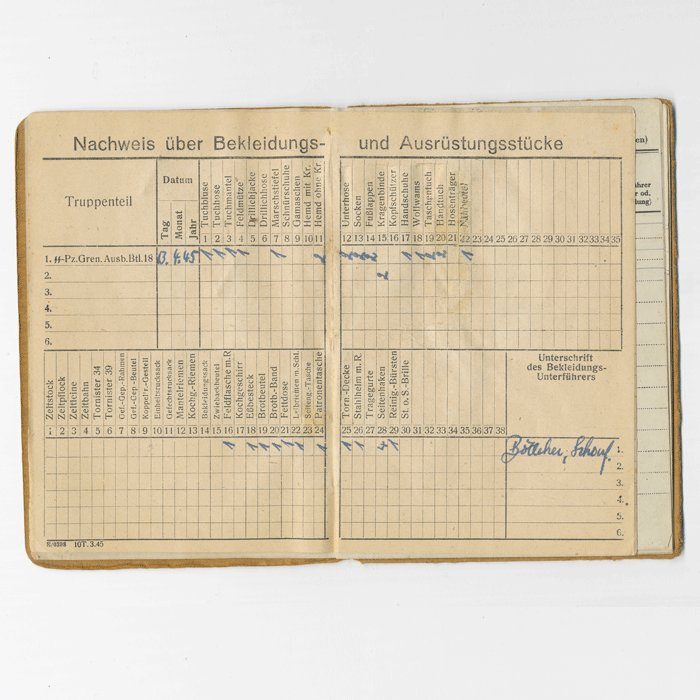 Nachweis über Bekleidungs- und Ausrüstungsstücke
Truppenteil
Datum
Tag
Monat
Jahr
Tuchbluse
Tuchhose
Tuchmantel
Feldmütze
Drillichjacke
Drillichhose
Marschstiefel
Schnürschuhe
Gamaschen
Hemd mit Kr.
Hemd ohne Kr.
Unterhose
Socken
Fußlappen
Kragenbinde
Kopfschützer
Handschuhe
Wollwams
Taschentuch
Handtuch
Hosenträger
1 2 3 4 5 6 7 8 9 10 11 12 13 14 15 16 17 18 19 20 21 22 23 24 25 26 27 28 29 30 31 32 33 34 35
1. ᛋᛋ-Pz.Gren.Ausb.Btl.18 13. 4. 45
2.
3.
4.
5.
6.
Zeltstock
Zeltpflock
Zeltleine
Zeltbahn
Tornister 34
Tornister 39
Gef.-Gep.-Rahmen
Gef.-Gep.-Beutel
Koppeltr.-Gestell
Einheitsrucksack
Gefechtsrucksack
Mantelriemen
Kochg.-Riemen
Bekleidungssack
Zwiebackbeutel
Feldflasche m.R.
Kochgeschirr
Eßbesteck
Brotbeutel
Brotb.-Band
Fettdose
Leibriemen m.Schl.
Seiteng.-Tasche
Patronentasche
Torn.-Decke
Stahlhelm m.R.
Tragegurte
Seitenhaken
Reinig.-Bürsten
St.o.S.-Brille
Unterschrift
des Bekleidungs-
Unterführers
1 2 3 4 5 6 7 8 9 10 11 12 13 14 15 16 17 18 19 20 21 22 23 24 25 26 27 28 29 30 31 32 33 34 35 36 37 38
Böttcher, 1.
2.
3.
4.
5.
6.
10T. 3.45